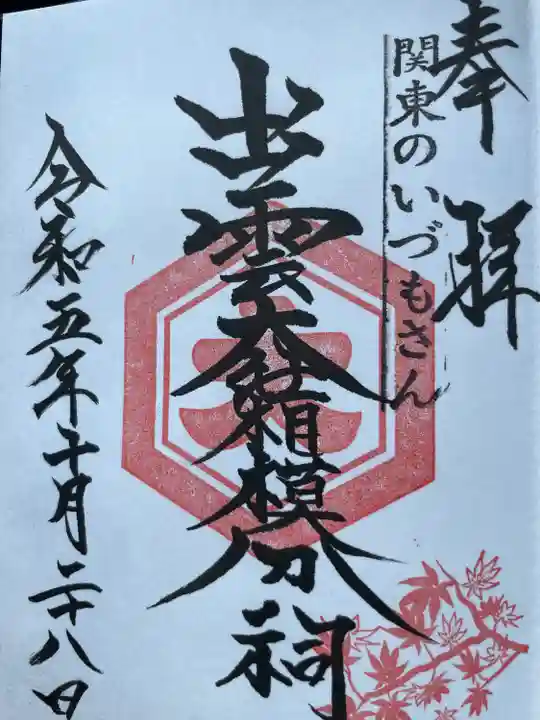 奉拝
関東のいづもさん
出雲大社相模分祠
令和五年十月二十八日
大